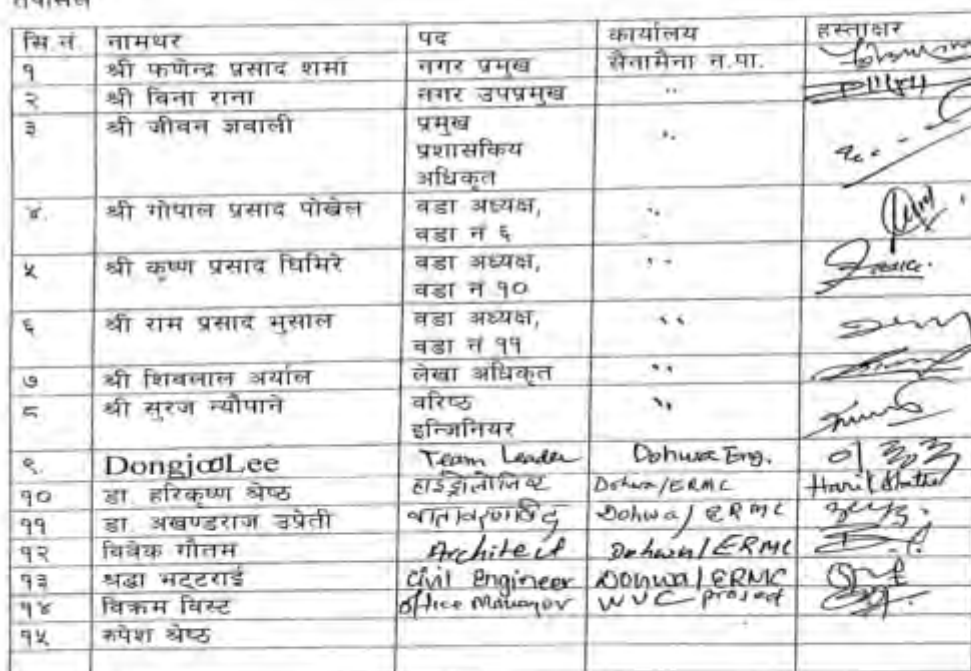 तपसिल
सि.नं. नामथर पद कार्यालय हस्ताक्षर
१ श्री फणेन्द्र प्रसाद शर्मा नगर प्रमुख सैनामैना न.पा.
२ श्री विना राना नगर उपप्रमुख "
३ श्री जीवन ज्ञवाली प्रमुख "
प्रशासकिय
अधिकृत
४. श्री गोपाल प्रसाद पोखेल वडा अध्यक्ष, "
वडा नं ६
५ श्री कृष्ण प्रसाद घिमिरे वडा अध्यक्ष, "
वडा नं १०
६ श्री राम प्रसाद भुसाल वडा अध्यक्ष, "
वडा नं ११
७ श्री शिवलाल अर्याल लेखा अधिकृत "
८ श्री सुरज न्यौपाने वरिष्ठ "
इन्जिनियर
९. DongjooLee Team Leader Dohwa Eng.
१० डा. हरिकृष्ण श्रेष्ठ हाईड्रोलोजिष्ट Dohwa/ERMC
११ डा. अखण्डराज उप्रेती Dohwa/ERMC
१२ विवेक गौतम Architect Dohwa/ERMC
१३ श्रद्धा भट्टराई Civil Engineer Dohwa/ERMC
१४ विक्रम विस्ट Office Manager WVC project
१५ रुपेश श्रेष्ठ